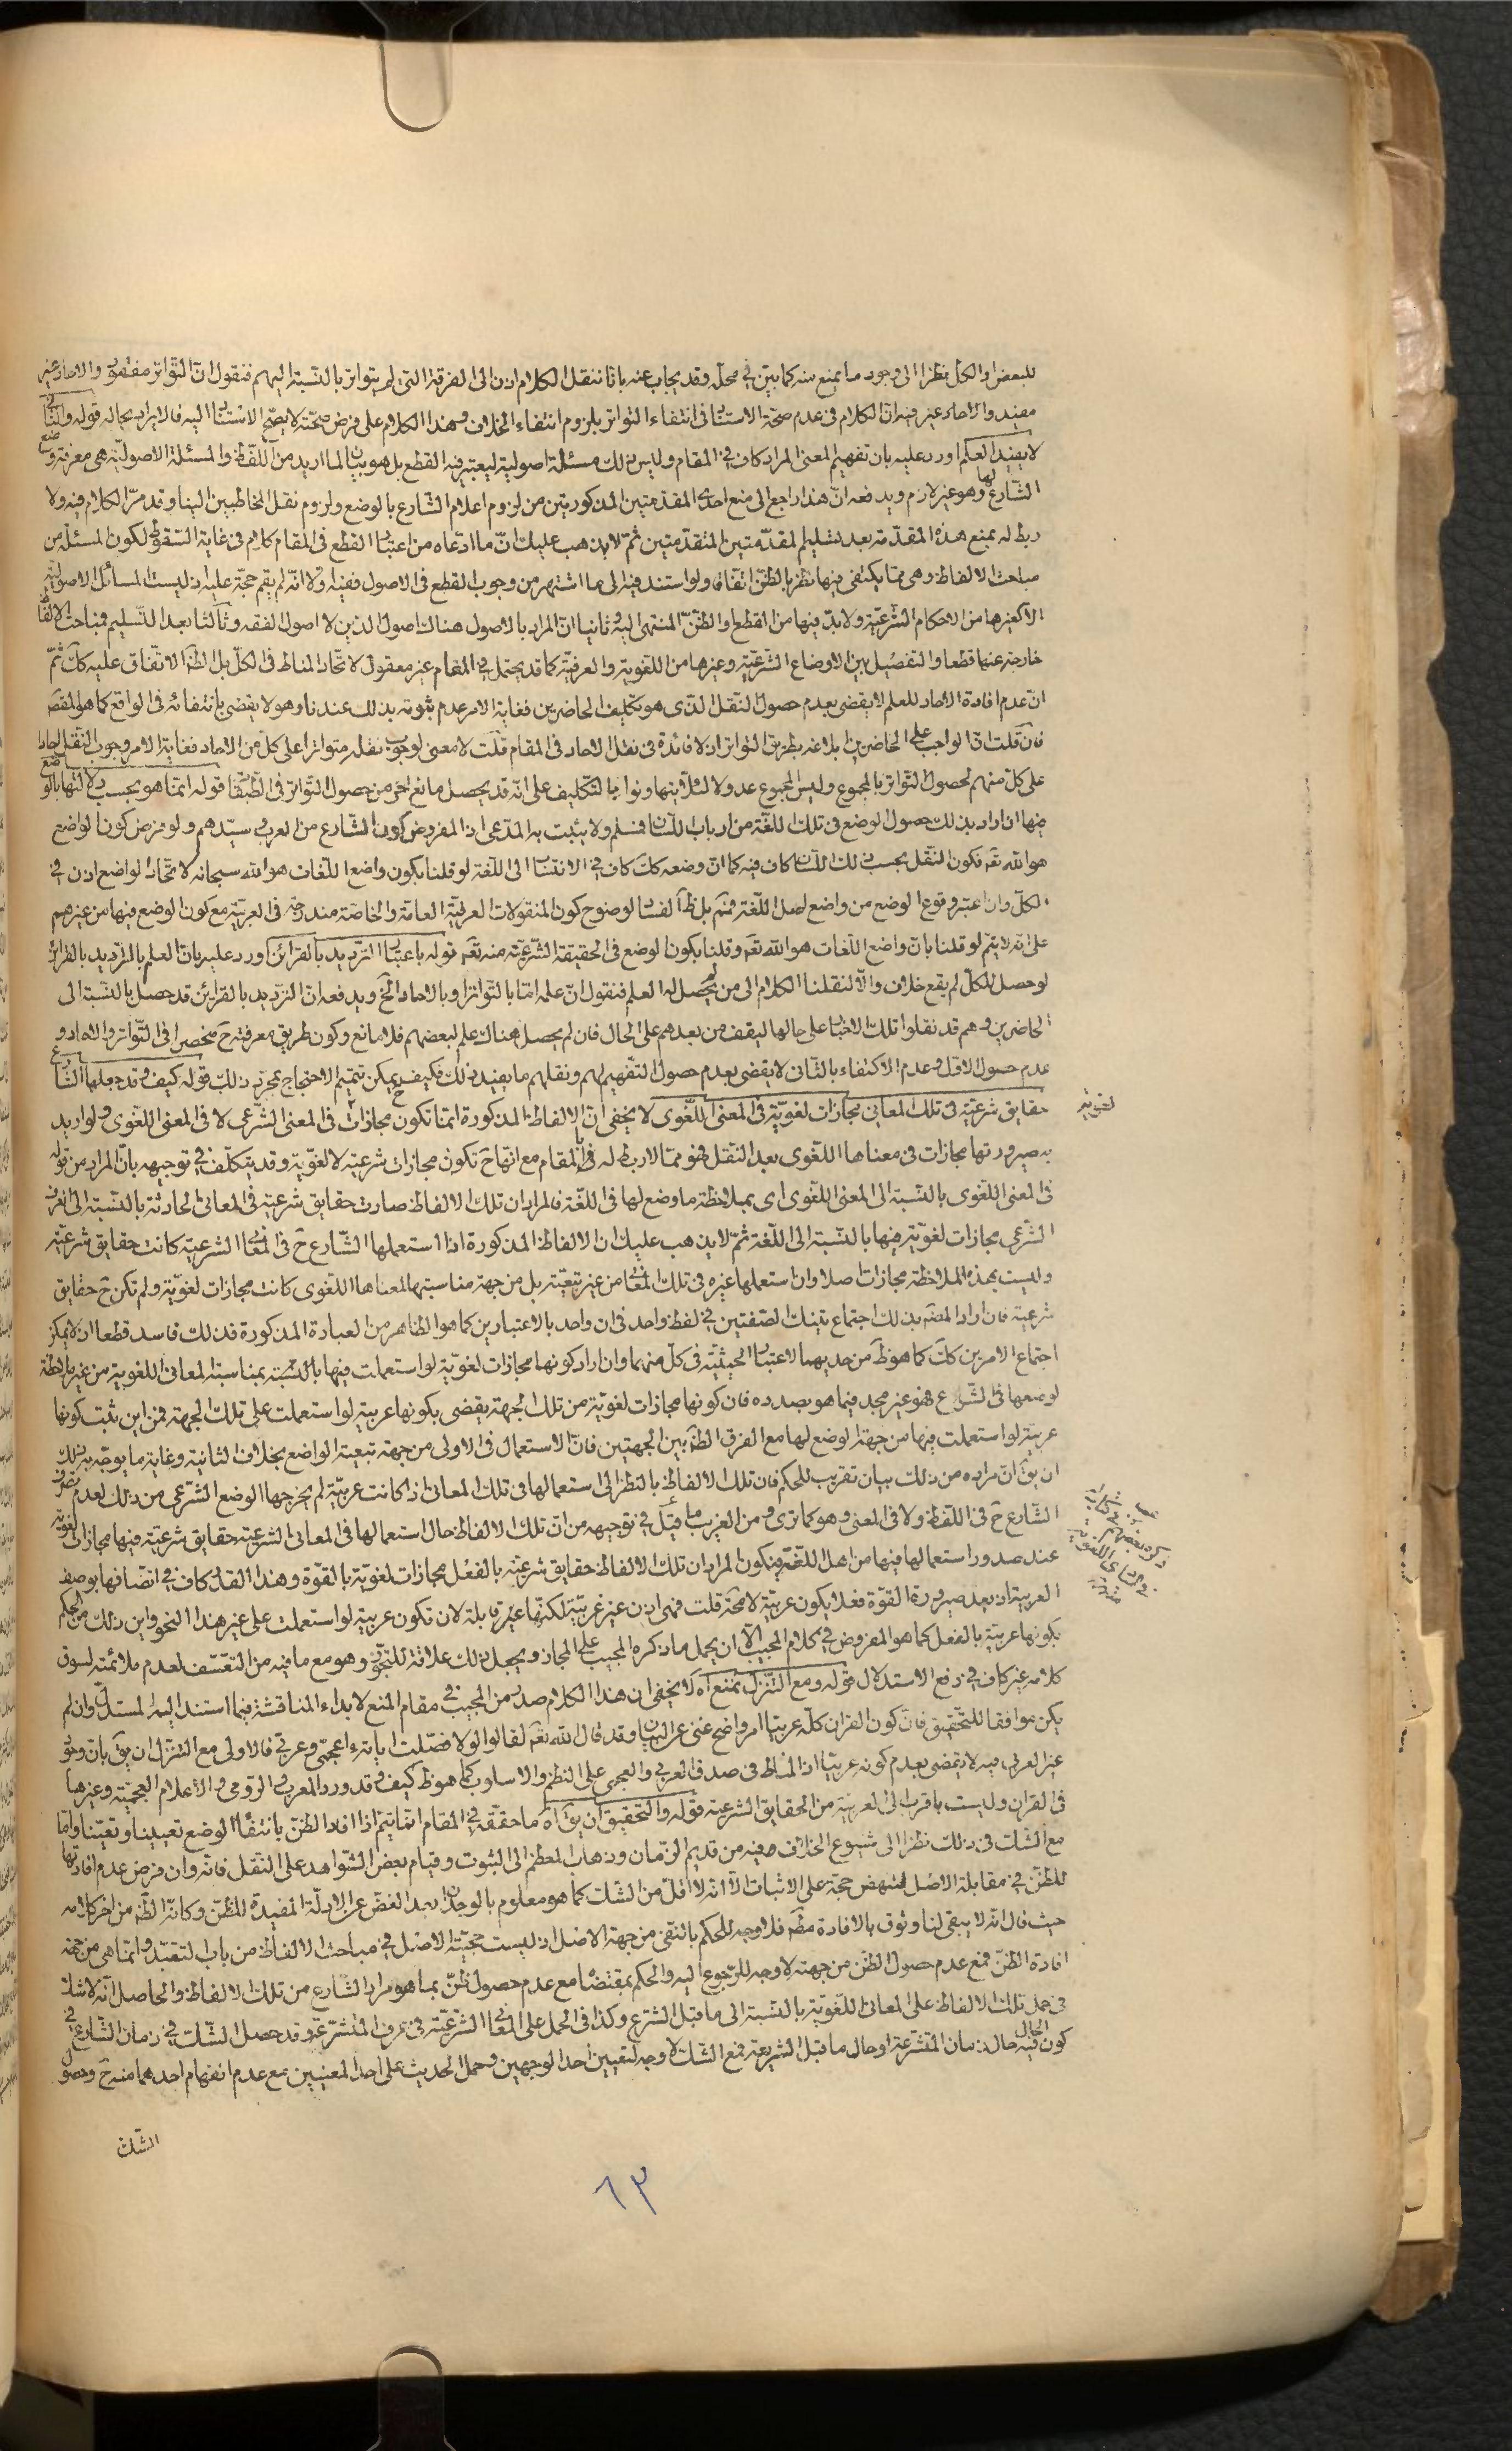 للبعض او الكل نظرا الى وجود ما يمنع منه كما بين في محله وقد يجاب عنه بانا ننقل الكلام اذن الى الفرقة التي لم يتواتر بالنسبة اليهم فنقول ان التواتر مفقود والاحاد غير
مفيد والاحاد غير فيه ان الكلام في عدم صحة الاستناد في انتفاء التواتر بلزوم انتفاء الخلاف وهذا الكلام على فرض صحته لا يصح الاستناد اليه فالايراد بحاله قوله والثاني
لا يفيد العلم اورد عليه بان تفهيم المعنى المراد كاف في المقام وليس ذلك مسئلة اصولية ليعتبر فيه القطع بل هو بيان لما اريد من اللفظ والمسئلة الاصولية هي معرفة وضع
الشارع لها وهو غير لازم ويدفعه ان هذا راجع الى منع احدى المقدمتين المذكورتين من لزوم اعلام الشارع بالوضع ولزوم نقل المخاطبين الينا وقد مر الكلام فيه ولا
ربط له بمنع هذه المقدمة بعد تسليم المقدمتين المتقدمتين ثم لا يذهب عليك ان ما ادعاه من اعتبار القطع في المقام كلام في غاية السقوط لكون المسئلة من
مباحث الالفاظ وهي مما يكتفى فيها نظر بالظن اتفاقا ولو استند فيه الى ما اشتهر من وجوب القطع في الاصول ففيه اولا انه لم يقم حجة عليه اذ ليست المسائل الاصولية
الا كغيرها من الاحكام الشرعية ولا بد فيها من القطع او الظن المنتهي اليه وثانيا ان المراد بالاصول هناك اصول الدين لا اصول الفقه وثالثا بعد التسليم فمباحث الالفاظ
خارجة عنها قطعا والتفصيل بين الاوضاع الشرعية وغيرها من اللغوية والعرفية كما قد يحتمل في المقام غير معقول لاتحاد المناط في الكل بل الظ الاتفاق عليه كك ثم
ان عدم افادة الاحاد للعلم لا يقضي بعدم حصول النقل الذي هو تكليف الحاضرين فغاية الامر عدم ثبوته بذلك عندنا وهو لا يقضي بانتفائه في الواقع كما هو المقصد
فان قلت ان الواجب على الحاضرين ابلاغه بطريق التواتر اذ لا فائدة في نقل الاحاد في المقام قلت لا معنى لوجوب نقله متواترا على كل من الاحاد فغاية الامر وجوب النقل احادا
على كل منهم لحصول التواتر بالمجموع وليس المجموع عدولا لئلا يتهاونوا بالتكليف على انه قد يحصل مانع اخر من حصول التواتر في الطبقات قوله انما هو بحسب دلالتها بالوضع
فيها ان اراد بذلك حصول الوضع في تلك اللغة من ارباب اللسان فمسلم ولا يثبت به المدعى اذ المفروض كون الشارع من العرب وسيدهم ولو فرض كون الواضع
هو الله تعه فكون النقل بحسب ذلك اللسان كاف فيه كما ان وضعه كك كاف في الانتساب الى اللغة لو قلنا بكون واضع اللغات هو الله سبحانه لاتحاد الواضع اذن في
الكل وان اعتبر وقوع الوضع من واضع اصل اللغة فمنعه بل ظ الفساد لوضوح كون المنقولات العرفية العامة والخاصة مندرجة في العربية مع كون الوضع فيها من غيرهم
على انه لا يتم لو قلنا بان واضع اللغات هو الله تعه وقلنا بكون الوضع في الحقيقة الشرعية منه تعه قوله باعتبار الترديد بالقرائن اورد عليه بان العلم بالترديد بالقرائن
لو حصل للكل لم يقع خلاف والا لنقلنا الكلام الى من لم يحصل له العلم فنقول ان علمه اما بالتواتر او بالاحاد الخ ويدفعه ان الترديد بالقراين قد حصل بالنسبة الى
الحاضرين وهم قد نقلوا تلك الاخبار على حالها ليقف من بعدهم على الحال فان لم يحصل هناك علم لبعضهم فلا مانع وكون طريق معرفته ح منحصرا في التواتر والاحاد و
عدم حصول الاول وعدم الاكتفاء بالثاني لا يقضي بعدم حصول التفهيم لهم ونقلهم ما يفيد ذلك فكيف يمكن تتميم الاحتجاج بمجرد ذلك قوله كيف وقد جعلها الشارع
حقايق شرعية في تلك المعاني مجازات لغوية في المعنى اللغوي لا يخفى ان الالفاظ المذكورة انما تكون مجازات في المعنى الشرعي لا في المعنى اللغوي ولو اريد
به صيرورتها مجازات في معناها اللغوي بعد النقل فهو مما لا ربط له في المقام مع انها ح تكون مجازات شرعية لا لغوية وقد يتكلف في توجيهه بان المراد من قوله
في المعنى اللغوي بالنسبة الى المعنى اللغوي اي بملاحظة ما وضع لها في اللغة فالمراد ان تلك الالفاظ صارت حقايق شرعية في المعاني الحادثة بالنسبة الى العرف
الشرعي مجازات لغوية فيها بالنسبة الى اللغة ثم لا يذهب عليك ان الالفاظ المذكورة اذا استعملها الشارع ح في المعاني الشرعية كانت حقايق شرعية
وليست بهذه الملاحظة مجازات اصلا وان استعملها غيره في تلك المعاني من غير تبعيته بل من جهة مناسبتها لمعناها اللغوي كانت مجازات لغوية ولم تكن ح حقايق
شرعية فان اراد المصه بذلك اجتماع تينك الصفتين في لفظ واحد في ان واحد بالاعتبارين كما هو الظاهر من العبارة المذكورة فذلك فاسد قطعا اذ لا يمكن
اجتماع الامرين كك كما هو ظ من حديهما لاعتبار الحيثية في كل منهما وان اراد كونها مجازات لغوية لو استعملت فيها بالنسبة بمناسبة المعاني اللغوية من غير ملاحظة
لوضعها في الشرع فهو غير مجد فيما هو بصدده فان كونها مجازات لغوية من تلك الجهة يقضي بكونها عربية لو استعملت على تلك الجهة فمن اين ثبت كونها
عربية لو استعملت فيها من جهة الوضع لها مع الفرق الظ بين الجهتين فان الاستعمال في الاولى من جهة تبعية الواضع بخلاف الثانية وغاية ما يوجه به ذلك
ان يق ان مراده من ذلك بيان تقريب للحكم فان تلك الالفاظ بالنظر الى استعمالها في تلك المعاني اذا كانت عربية لم يخرجها الوضع الشرعي من ذلك لعدم تصرف
الشارع ح في اللفظ ولا في المعنى وهو كما ترى ومن الغريب ما قيل في توجيهه من ان تلك الالفاظ حال استعمالها في المعاني الشرعية حقايق شرعية فيها مجازات لغوية
عند صدور استعمالها فيها من اهل اللغة فيكون المراد ان تلك الالفاظ حقايق شرعية بالفعل مجازات لغوية بالقوة وهذا القدر كاف في اتصافها بوصف
العربية اذ بعد صيرورة القوة فعلا يكون عربية لا محة قلت فهي اذن غير عربية لكنها غير قابلة لان تكون عربية لو استعملت على غير هذا النحو واين ذلك من الحكم
بكونها عربية بالفعل كما هو المفروض في كلام المجيب الا ان يحمل ما ذكره المجيب على المجاز ويجعل ذلك علاقة للتجوز وهو مع ما فيه من التعسف لعدم ملائمته لسوق
كلامه غير كاف في دفع الاستدلال قوله ومع التنزل نمنع اه لا يخفى ان هذا الكلام صدر من المجيب في مقام المنع لابداء المناقشة فيما استند اليه المستدل وان لم
يكن موافقا للتحقيق فان كون القران كله عربيا امر واضح غني عن البيان وقد قال الله تعه لقالوا لولا فصلت اياته ءاعجمي وعربي فالاولى مع التنزل ان يق بان وقوع
غير العربي فيه لا يقضي بعدم كونه عربيا اذ المناط في صدق العربي والعجمي على النظم والاسلوب كما هو ظ كيف وقد ورد المعرب والرومي والاعلام العجمية وغيرها
في القران وليست باقرب الى العربية من الحقايق الشرعية قوله والتحقيق ان يق اه ما حققه في المقام انما يتم اذا افاد الظن بانتفاء الوضع تعيينا وتعينا واما
مع الشك في ذلك نظرا الى شيوع الخلاف فيه من قديم الزمان وذهاب المعظم الى الثبوت وقيام بعض الشواهد على النقل فانه وان فرض عدم افادتها
للظن في مقابلة الاصل لتنهض حجة على الاثبات الا انه لا اقل من الشك كما هو معلوم بالوجدان بعد الغض عن الادلة المفيدة للظن وكانه الظ من اخر كلامه
حيث قال انه لا يبقى لنا وثوق بالافادة مطه فلا وجه للحكم بالنفي من جهة الاصل اذ ليست حجية الاصل في مباحث الالفاظ من باب التعبد وانما هي من جهة
افادة الظن فمع عدم حصول الظن من جهته لا وجه للرجوع اليه والحكم بمقتضاه مع عدم حصول ظن بما هو مراد الشارع من تلك الالفاظ والحاصل انه لا شك
في حمل تلك الالفاظ على المعاني اللغوية بالنسبة الى ما قبل الشرع وكذا في الحمل على المعاني الشرعية في عرف المتشرعة وقد حصل الشك في زمان الشارع في
كون الحال فيه حال زمان المتشرعة او حال ما قبل الشريعة فمع الشك لا وجه لتعيين احد الوجهين وحمل الحديث على احد المعنيين مع عدم انفهام احدهما منه ح وحصول
الشك
لغوية
٦٣